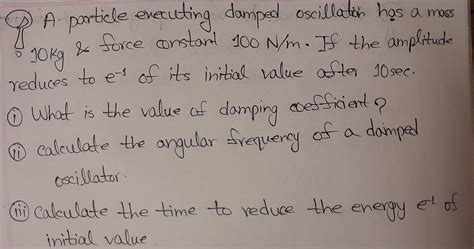 Q A particle executing damped oscillation has a mass
10kg & force constant 100 N/m. If the amplitude
reduces to e⁻¹ of its initial value after 10sec.
(i) What is the value of damping coefficient?
(ii) calculate the angular frequency of a damped
oscillator.
(iii) Calculate the time to reduce the energy e⁻¹ of
initial value